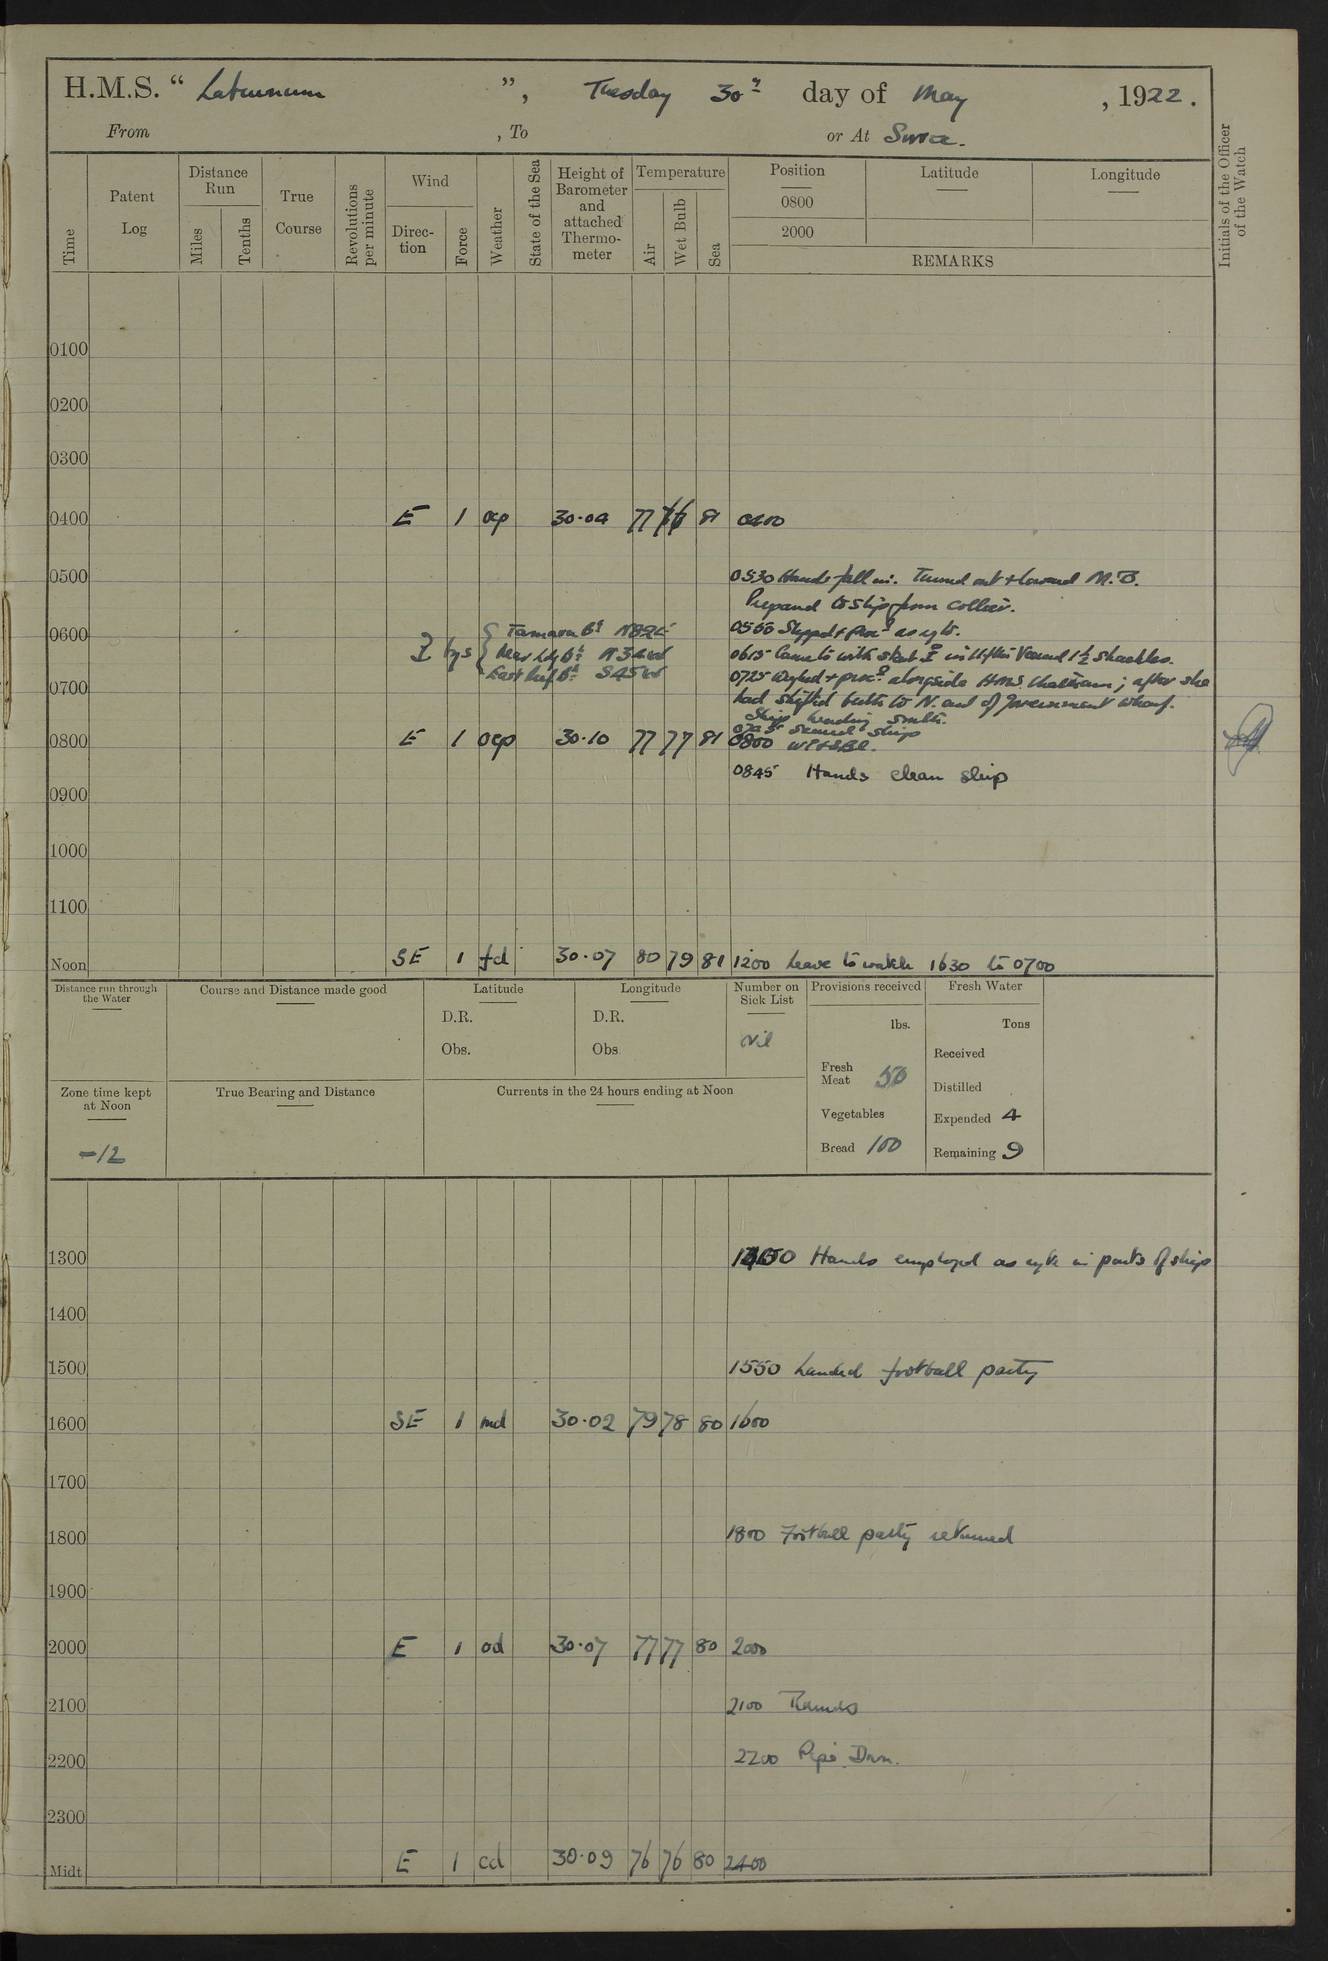 H.M.S. “ Laburnum ”, Tuesday 30th day of May , 1922.
From , To or At Suva.
Time
Patent Log
Distance Run
Miles
Tenths
True Course
Revolutions per minute
Wind
Direc-tion
Force
Weather
State of the Sea
Height of Barometer and attached Thermo-meter
Temperature
Air
Wet Bulb
Sea
Position
0800
2000
Latitude
Longitude
REMARKS
Initials of the Officer of the Watch
0100
0200
0300
0400 E 1 ocp 30·04 77 76 81 0400
0500 0530 Hands fall in. Turned out & lowered M.B.
Prepared to slip from collier.
0600 0555 Slipped & proc? as req to.
{ Tamavua Bn N82E
bgs { Mas Ldg Bn N34W
{ East Reef Bn S45W
0615 Came to with stbd in Veered 1½ shackles.
0700 0725 Weighed & proc? alongside H.M.S. Chatham; after she
had shifted berth to N. end of Government wharf.
Ship heading South.
0745 Secured ship
0800 E 1 ocp 30·10 77 77 81 0800
0845 Hands clean ship
0900
1000
1100
Noon SE 1 fd 30·07 80 79 81 1200 Leave to watch 1630 to 0700
Distance run through the Water
Course and Distance made good
Latitude
D.R.
Obs.
Longitude
D.R.
Obs
Number on Sick List
Nil
Provisions received
lbs.
Fresh Meat 50
Vegetables
Bread 100
Fresh Water
Tons
Received
Distilled
Expended 4
Remaining 9
Zone time kept at Noon
-12
True Bearing and Distance
Currents in the 24 hours ending at Noon
1300 Hands employed as req in parts of ship
1400
1500 1550 Landed football party
1600 SE 1 md 30·02 79 78 80 1600
1700
1800 1800 Football party returned
1900
2000 E 1 od 30·07 77 77 80 2000
2100 2100 Rounds
2200 2200 Pipe Down.
2300
Midt E 1 cd 30·09 76 76 80 2400